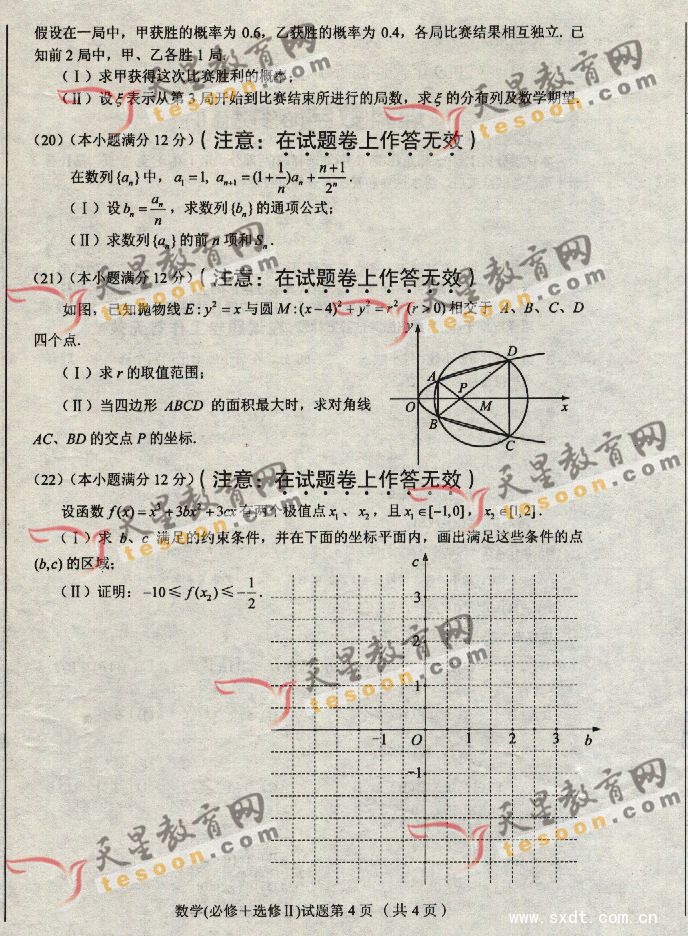 假设在一局中，甲获胜的概率为 0.6，乙获胜的概率为 0.4，各局比赛结果相互独立. 已
知前 2 局中，甲、乙各胜 1 局.
（Ⅰ）求甲获得这次比赛胜利的概率；
（Ⅱ）设 ξ 表示从第 3 局开始到比赛结束所进行的局数，求 ξ 的分布列及数学期望.
(20)（本小题满分 12 分）（注意：在试题卷上作答无效）
在数列{aₙ}中，a₁=1, aₙ₊₁=(1+1/n)aₙ+(n+1)/2ⁿ.
（Ⅰ）设 bₙ=aₙ/n，求数列{bₙ}的通项公式；
（Ⅱ）求数列{aₙ}的前 n 项和 Sₙ.
(21)（本小题满分 12 分）（注意：在试题卷上作答无效）
如图，已知抛物线 E:y²=x 与圆 M:(x−4)²+y²=r² (r>0) 相交于 A、B、C、D
四个点.
（Ⅰ）求 r 的取值范围；
（Ⅱ）当四边形 ABCD 的面积最大时，求对角线
AC、BD 的交点 P 的坐标.
y
D
A
P
O
M
x
B
C
(22)（本小题满分 12 分）（注意：在试题卷上作答无效）
设函数 f(x)=x³+3bx²+3cx 有两个极值点 x₁、x₂，且 x₁∈[−1,0]，x₂∈[1,2].
（Ⅰ）求 b、c 满足的约束条件，并在下面的坐标平面内，画出满足这些条件的点
(b,c) 的区域；
（Ⅱ）证明：−10≤f(x₂)≤−1/2.
c
3
2
1
−1 O 1 2 3 b
−1
数学(必修＋选修Ⅱ)试题第 4 页（共 4 页）
天星教育网
tesoon.com
天星教育网
tesoon.com
天星教育网
tesoon.com
天星教育网
tesoon.com
天星教育网
tesoon.com
天星教育网
tesoon.com
天星教育网
tesoon.com
天星教育网
tesoon.com
天星教育网
tesoon.com
www.sxdt.com.cn